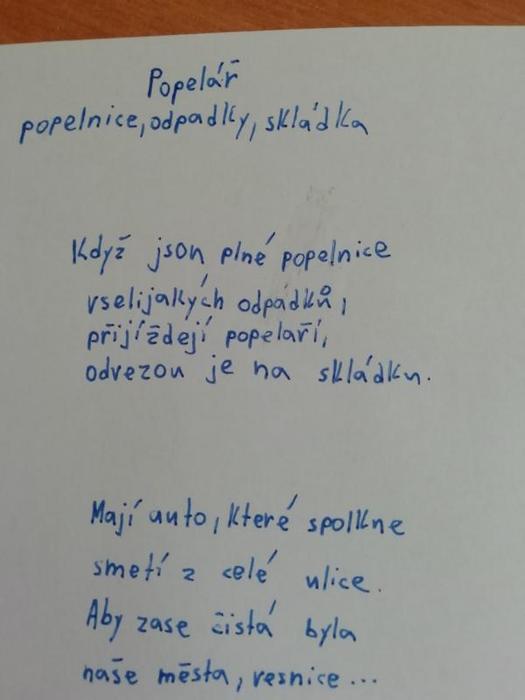 Popelář
popelnice, odpadky, skládka
Když jsou plné popelnice
vselijakých odpádků,
přijíždejí popelaří,
odvezou je na skládku.
Mají auto, které spolkne
smetí z celé ulice.
Aby zase čistá byla
naše města, vesnice...